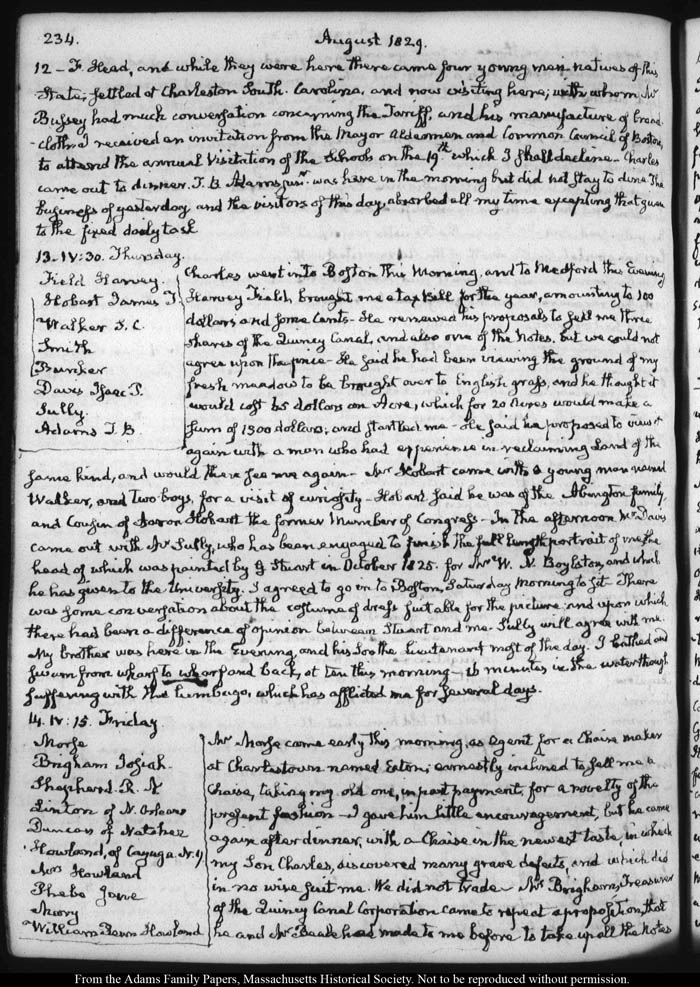 234.
August 1829.
12 - F. Head, and while they were here there came four young men natives of this
State, settled at Charleston South-Carolina, and now visiting here; with whom Mr
Bussey had much conversation concerning the Tariff, and his manufacture of broad-
cloths I received an invitation from the Mayor Aldermen and Common Council of Boston,
to attend the annual Visitation of the Schools on the 19th which I shall decline. Charles
came out to dinner. T. B. Adams junr was here in the morning but did not stay to dine The
business of yesterday and the visitors of this day, absorbed all my time excepting that given
to the fixed daily task
13. IV:30. Thursday.
Field Harvey.
Hobart James T
Walker S. C.
Smith
Bunker
Davis Isaac P.
Sully.
Adams T. B.
Charles went into Boston this Morning, and to Medford this Evening
Harvey Field, brought me a tax Bill for the year, amounting to 100
dollars and some Cents - He renewed his proposals to sell me three
shares of the Quincy Canal, and also one of the Notes, but we could not
agree upon the price - He said he had been viewing the ground of my
fresh meadow to be brought over to English grass, and he thought it
would cost 65 dollars an Acre, which for 20 Acres would make a
sum of 1300 dollars; and startled me - He said he proposed to view it
again with a man who had experience in reclaiming Land of the
same kind, and would then see me again - Mr Hobart came with a young man named
Walker, and Two boys, for a visit of curiosity - Hobart said he was of the Abington family
and Cousin of Aaron Hobart the former Member of Congress - In the afternoon Mr Davis
came out with Mr Sully, who has been engaged to finish the full length portrait of me, the
head of which was painted by G Stuart in October 1825. for Mr W. N. Boylston, and which
he has given to the University. I agreed to go in to Boston, Saturday Morning to sit - There
was some conversation about the costume of dress suitable for the picture and upon which
there had been a difference of opinion between Stuart and me. Sully will agree with me.
My brother was here in the Evening, and his Son the Lieutenant most of the day. I bathed and
swam from wharf to wharf and back, at ten this morning - 16 minutes in the water though
suffering with the Lumbago, which has afflicted me for several days.
14. IV:15. Friday
Morse
Brigham Josiah.
Shepherd. R. A
Linton of N. Orleans
Duncan of Natchez
Howland, of Cayuga N.Y
Mrs Howland
Phebe Jane
Mory
William Penn Howland
Mr Morse came early this morning, as Agent for a Chaise maker
at Charlestown named Eaton; earnestly inclined to sell me a
Chaise, taking my old one, in part payment, for a novelty of the
present fashion - I gave him little encouragement, but he came
again after dinner, with a Chaise in the newest taste, in which
my Son Charles, discovered many grave defects, and which did
in no wise suit me. We did not trade - Mr Brigham, Treasurer
of the Quincy Canal Corporation came to repeat a proposition, that
he and Mr Beale had made to me before to take up all the Notes
From the Adams Family Papers, Massachusetts Historical Society. Not to be reproduced without permission.